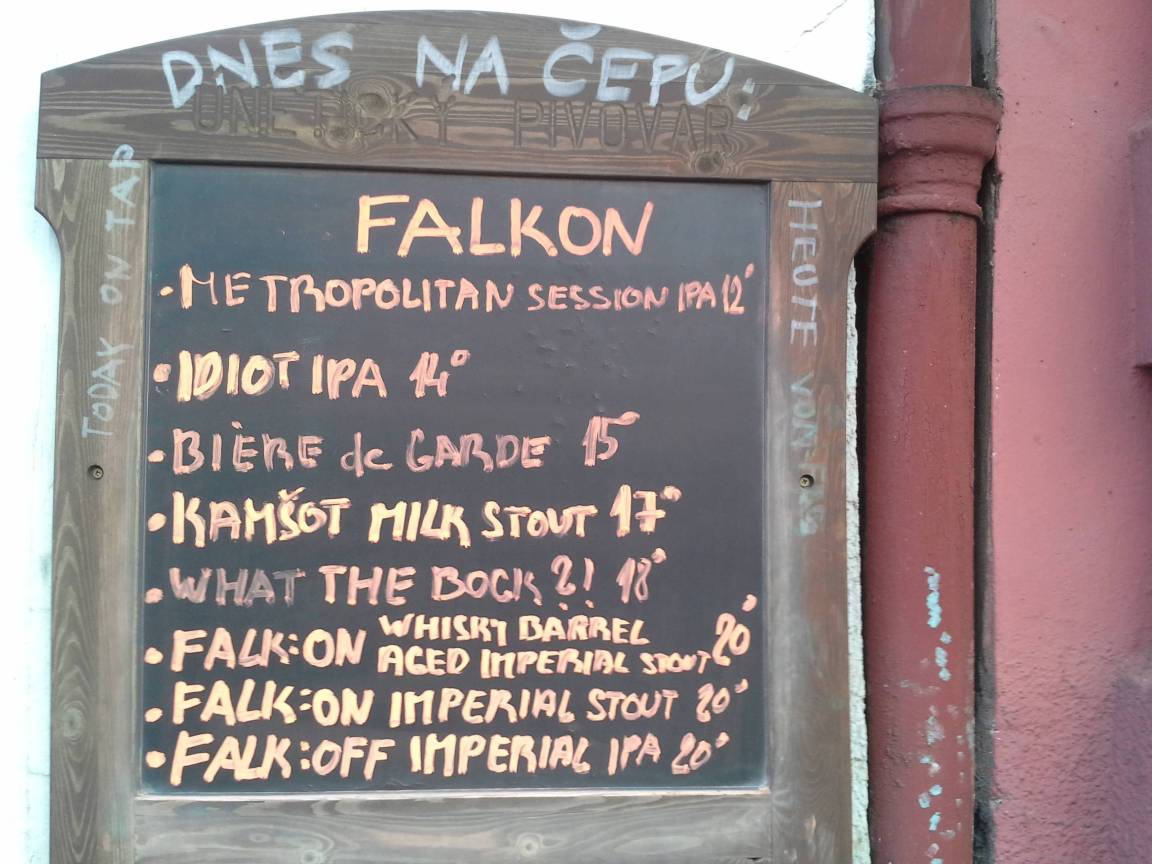 DNES NA ČEPU:
ÚNĚTICKÝ PIVOVAR
TODAY ON TAP
HEUTE VOM FAS
FALKON
• METROPOLITAN SESSION IPA 12°
• IDIOT IPA 14°
• BIÈRE de GARDE 15°
• KAMŠOT MILK STOUT 17°
• WHAT THE BOCK?! 18°
• FALK:ON WHISKY BARREL
AGED IMPERIAL STOUT 20°
• FALK:ON IMPERIAL STOUT 20°
• FALK:OFF IMPERIAL IPA 20°